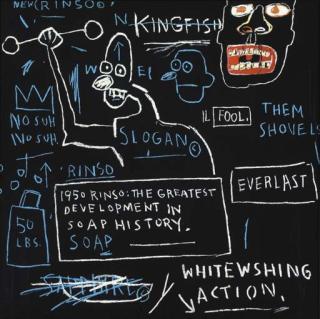 NEW (RINSO©
N
KINGFISH
W EI
IL FOOL.
THEM
SHOVELS
NO SUH.
NO SUH.
SLOGAN©
RINSO
1950 RINSO: THE GREATEST
DEVELOPMENT IN
SOAP HISTORY.
SOAP
EVERLAST
50
LBS.
SAPPHIRE©
WHITEWSHING
ACTION.